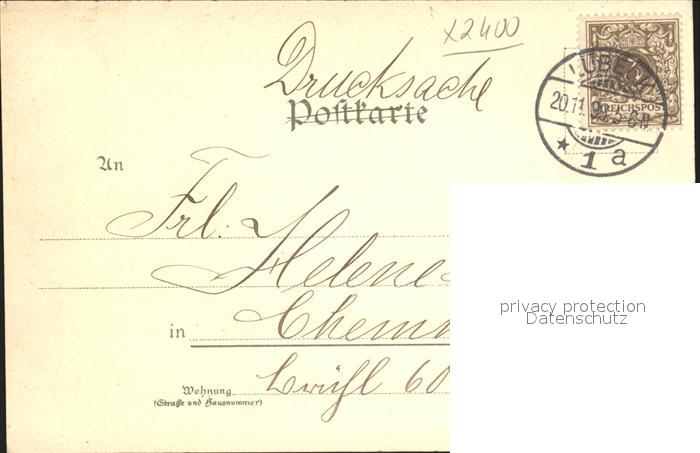 x2400
Drucksache
Postkarte
LÜBECK
REICHSPOST
20.11.99. 5-6 N
* 1 a
An
Frl. Helene
in Chemn
Brühl 60
Wohnung
(Straße und Hausnummer)
privacy protection
Datenschutz